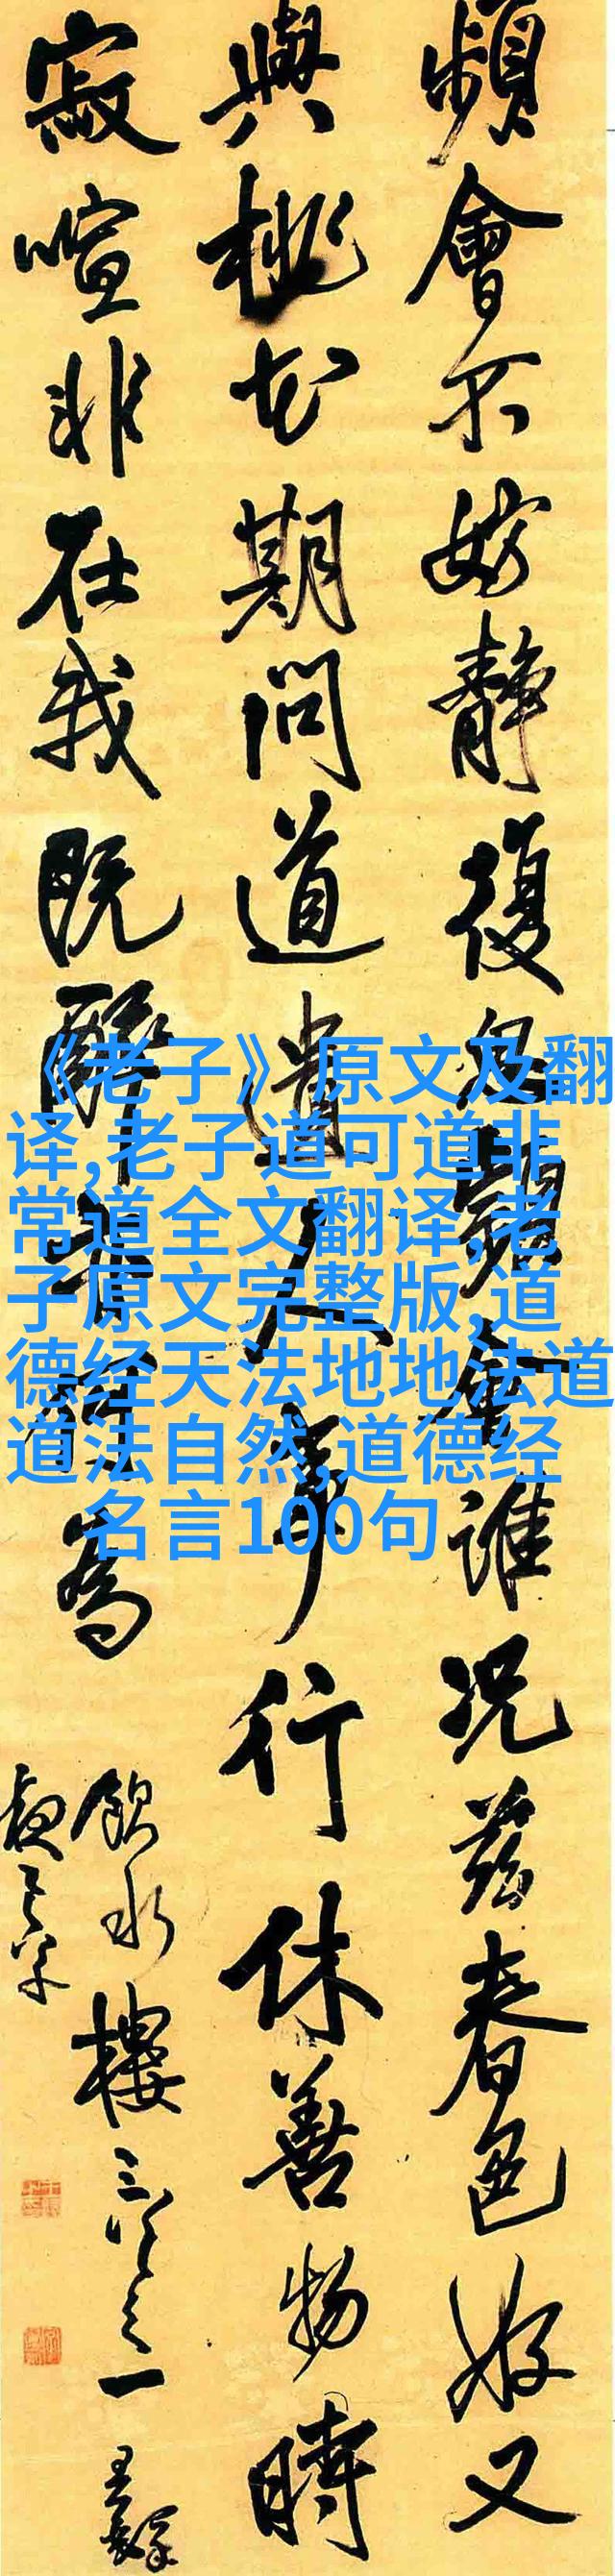 頻會不妨靜復會誰況茲春色好又
與桃花期問道遺人事行休善物時
寂喧非在我既醉為
飲水樓三之一
《老子》原文及翻
译,老子道可道非
常道全文翻译,老
子原文完整版,道
德经天法地地法道
道法自然,道德经
名言100句